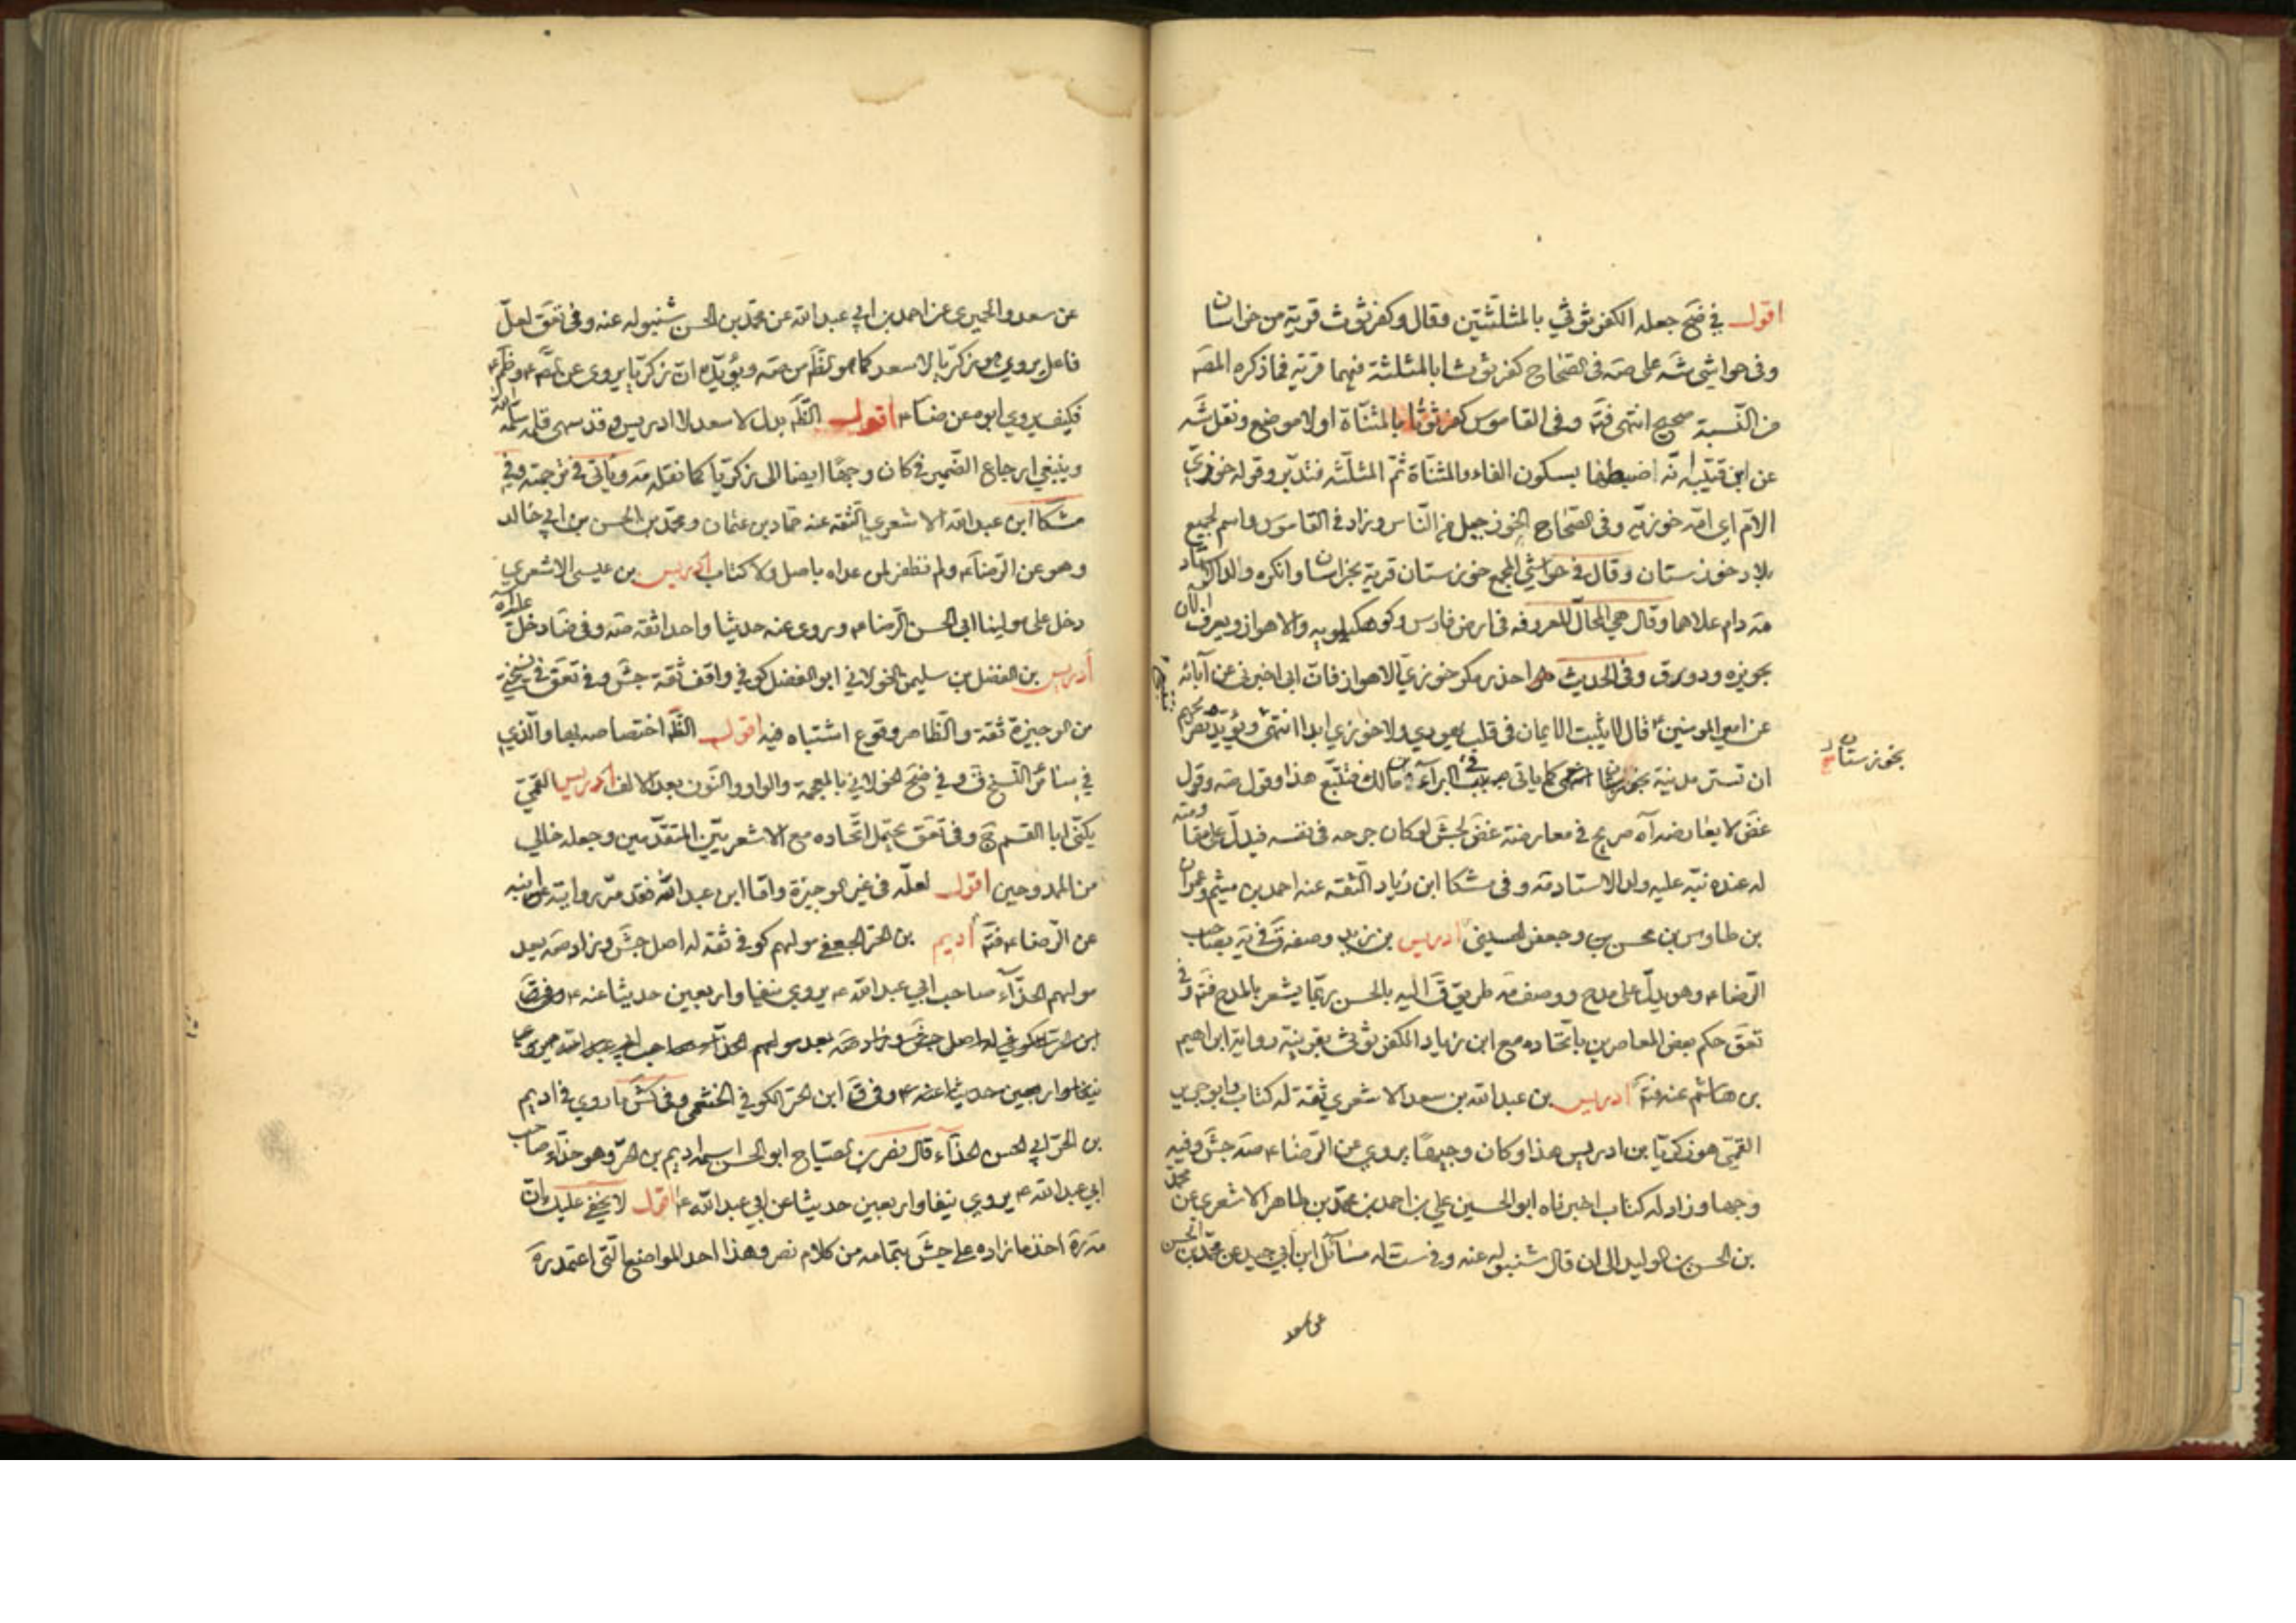 اقول في ضح جعله الكفرثوثي بالمثلثتين وقال وكفرثوث قرية من خراسان
وفى حواشى شه على صه فى الصحاح كفرثوثا بالمثلثة فيهما قرية فما ذكره المصَ
من النسبة صحيح انتهى فتَه وفى القاموس كفرتوثا بالمثناة اولا موضع ونقل شَه
عن ابن قتيبة انه اضبطها بسكون الفاء والمثناة ثم المثلثة فتدبر وقوله خوزيّ
الامّ اى امّه خوزيه وفى الصحاح الخوز جيل من الناس وزاد فى القاموس واسم لجميع
بلاد خوزستان وقال فى حواشي المجمع خوزستان قرية بخراسان وانكره والد الاستاد
مَه دام علاهما وقال هى المحال المعروفه فى ارض فارس وكوهكيلويه والاهواز ويعرف الان
بحويزه ودورق وفى الحديث احذر مكر خوزي الاهواز فان ابى اخبرنى عن آبائه
عن امير المومنين ع قال لا يثبت الايمان فى قلب يهودي ولا خوزي ابدا انتهى ويؤيده تصريحهم
ان تستر مدينة بخوزستان كما ياتى فى البرآء بن مالك فتتبّع هذا وقول صه وقول
غض لا يعارضه آه صريح في معارضة غض لجش لو كان جرحه فى نفسه فيدل على مقاومته
له عنده نبّه عليه والد الاستاد مَه وفى مشكا ابن زياد الثقه عنه احمد بن ميثم وعمران
بن طاوس بن محسن بن وجعفر الحسينى ادريس بن زيد وصفه فى يه بصاحب
الرضاء وهو يدلّ على مدح ووصف مَه طريق قَ اليه بالحسن ربّما يشعر بالمدح فتَه وفى
تعَق حكم بعض المعاصرين باتّحاده مع ابن زياد الكفرثوثى بقرينة رواية ابراهيم
بن هاشم عنه فتَه ادريس بن عبدالله بن سعد الاشعري ثقة له كتاب وابو جرير
القمّى هو زكريّا بن ادريس هذا وكان وجيها يروي عن الرّضاء صَه جش وفيه
وجها وزاد له كتاب اخبرناه ابو الحسين علي بن احمد بن محمّد بن طاهر الاشعرى عن محمد
بن الحسن بن الوليد الى ان قال شنبوله عنه وفى ست له مسائل ابن أبي جيد عن محمّد بن الحسن
عن سعد
بخوزستان
عن سعد والحميرى عن احمد بن ابي عبد الله عن محمّد بن الحسن شنبوله عنه وفى تعَق لعلّ
فاعل يروي هو زكريّا لا سعد كما هو ظَم من صَه ويؤيّده انّ زكريّا يروى عن
فكيف يروي ابوه عن ضاء اقول الظَم بدل لا سعد لا ادريس وقد سهى قلمه سلّمه الله
وينبغي ارجاع الضّمير فى كان وجيها ايضا الى زكريّا كما نقله مَه وياتى فى ترجمته وفي
مشكا ابن عبدالله الاشعري الثقه عنه حماد بن عثمان ومحمّد بن الحسن بن ابي خالد
وهو عن الرضاء ولم نظفر لمن عداه باصل ولا كتاب ادريس بن عيسى الاشعري
دخل على مولينا ابي الحسن الرّضاء وروى عنه حديثا واحدا ثقه صَه وفى ضا دخل عليه
أدريس بن الفضل بن سليمن الخولاني ابو الفضل كوفي واقف ثقة جش وفى تعَق فى نسختي
من الوجيزة ثقة والظاهر وقوع اشتباه فيه اقول الظَم اختصاصه بها والذي
في سائر النّسخ وفي ضح الخولاني بالمعجمة والواو والنّون بعد الالف ادريس القميّ
يكنّى ابا القسم وفى تعَق يحتمل اتّحاده مع الاشعريّين المتقدّمين وجعله خالي
من الممدوحين اقول لعلّه فى غير الوجيزة وامّا ابن عبدالله فقد مرّ رواية
عن الرّضاء فتَه أديم بن الحرّ الجعفي مولاهم كوفي ثقة له اصل جش وزاد صَه بعد
مولاهم الحذّاء صاحب ابي عبدالله ع يروي نيفا واربعين حديثا عنه ع
نيفا واربعين حديثا عنه ع وفى قَ ابن الحرّ الكوفي الخثعمى وفى كش ما روي فى اديم
بن الحرّ ابي الحسن الحذّاء قال نصر بن صباح ابو الحسن اسمه اديم بن الحرّ وهو حذّاء صاحب
ابي عبدالله ع يروي نيفا واربعين حديثا عن ابي عبدالله ع اقول لا يخفى عليك انّ
اخذ ما زاده على جش بتمامه من كلام نصر وهذا احد المواضع الّتى اعتمد